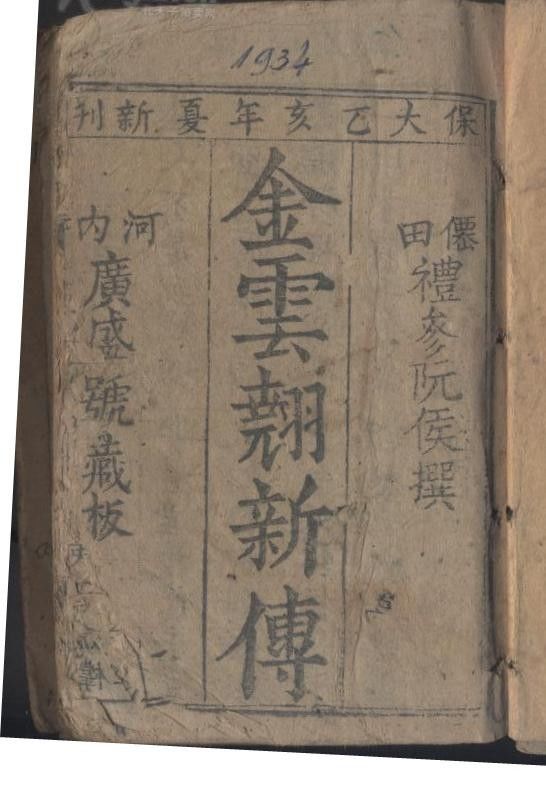 1934
保大乙亥年夏新刊
僊田禮參阮侯撰
金雲翹新傳
河内
廣盛號藏板